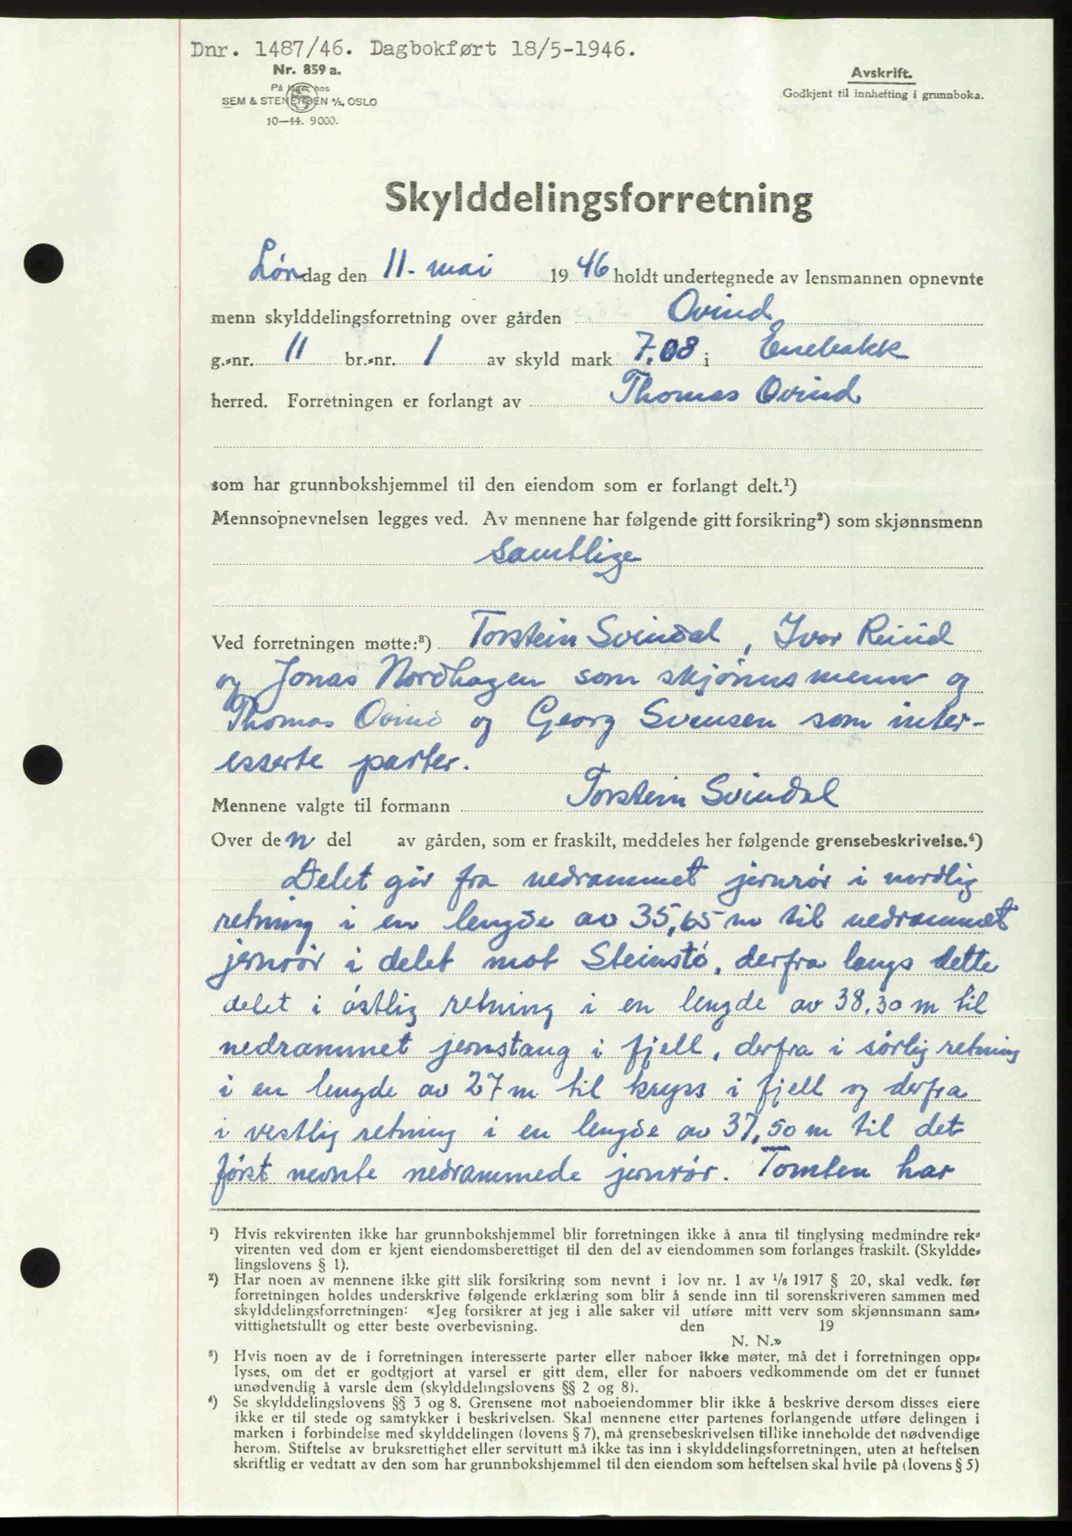 Dnr. 1487/46. Dagbokført 18/5-1946.
Nr. 859 a.
På lager hos
SEM & STENERSEN A/S, OSLO
10-44. 9000.
Avskrift.
Godkjent til innhefting i grunnboka.
Skylddelingsforretning
Løndag den 11. mai 1946 holdt undertegnede av lensmannen opnevnte
menn skylddelingsforretning over gården Ovind
g.-nr. 11 br.-nr. 1 av skyld mark 7.08 i Enebakk
herred. Forretningen er forlangt av Thomas Ovind
som har grunnbokshjemmel til den eiendom som er forlangt delt.¹)
Mennsopnevnelsen legges ved. Av mennene har følgende gitt forsikring²) som skjønnsmenn
samtlige
Ved forretningen møtte:³) Torstein Svindal, Ivar Ruud
og Jonas Nordhagen som skjønnsmenn og
Thomas Ovind og Georg Svensen som inter-
esserte parter.
Mennene valgte til formann Torstein Svindal
Over den del av gården, som er fraskilt, meddeles her følgende grensebeskrivelse.⁴)
Delet går fra nedrammet jernrør i nordlig
retning i en lengde av 35,65 m til nedrammet
jernrør i delet mot Steinstö, derfra langs dette
delet i östlig retning i en lengde av 38,30 m til
nedrammet jernstang i fjell, derfra i sörlig retning
i en lengde av 27 m til kryss i fjell og derfra
i vestlig retning i en lengde av 37,50 m til det
først nevnte nedrammede jernrør. Tomten har
¹) Hvis rekvirenten ikke har grunnbokshjemmel blir forretningen ikke å anta til tinglysing medmindre rek-
virenten ved dom er kjent eiendomsberettiget til den del av eiendommen som forlanges fraskilt. (Skyldde-
lingslovens § 1).
²) Har noen av mennene ikke gitt slik forsikring som nevnt i lov nr. 1 av 1/6 1917 § 20, skal vedk. før
forretningen holdes underskrive følgende erklæring som blir å sende inn til sorenskriveren sammen med
skylddelingsforretningen: «Jeg forsikrer at jeg i alle saker vil utføre mitt verv som skjønnsmann sam-
vittighetsfullt og etter beste overbevisning. den 19
N. N.»
³) Hvis noen av de i forretningen interesserte parter eller naboer ikke møter, må det i forretningen opp-
lyses, om det er godtgjort at varsel er gitt dem, eller for naboers vedkommende om det er funnet
unødvendig å varsle dem (skylddelingslovens §§ 2 og 8).
⁴) Se skylddelingslovens §§ 3 og 8. Grensene mot naboeiendommer blir ikke å beskrive dersom disses eiere
ikke er til stede og samtykker i beskrivelsen. Skal mennene etter partenes forlangende utføre delingen i
marken i forbindelse med skylddelingen (lovens § 7), må grensebeskrivelsen tillike inneholde det nødvendige
herom. Stiftelse av bruksrettighet eller servitutt må ikke tas inn i skylddelingsforretningen, uten at heftelsen
skriftlig er vedtatt av den som har grunnbokshjemmel til den eiendom som heftelsen skal hvile på (lovens § 5)